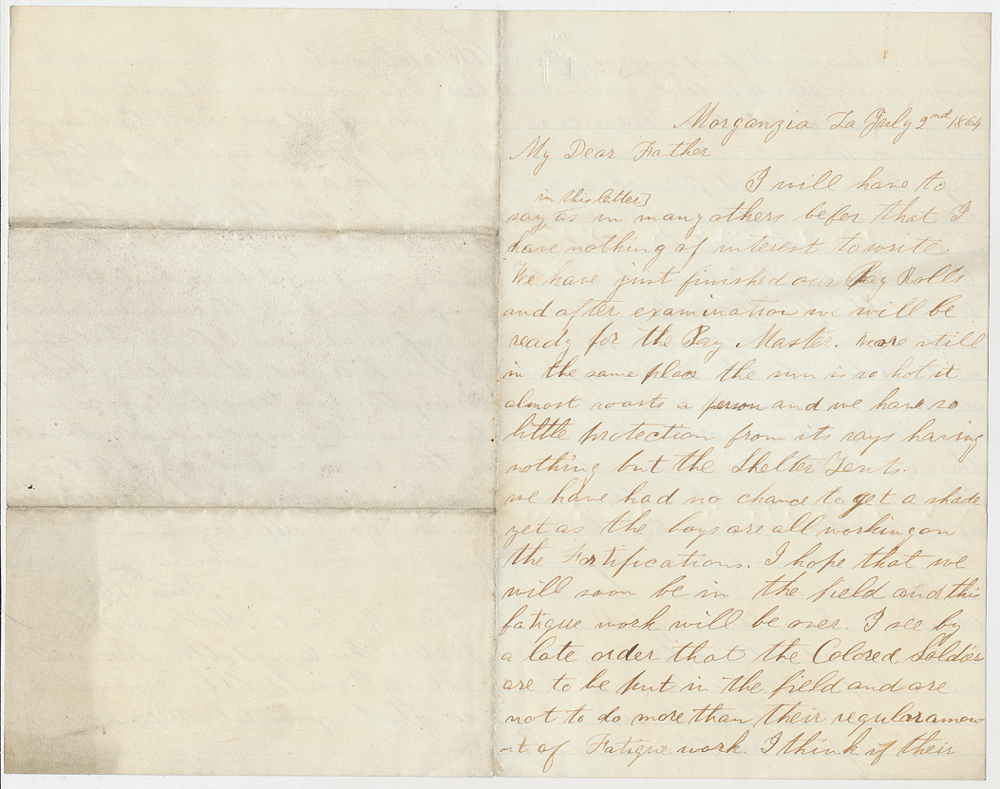 Morganzia La July 2nd 1864
My Dear Father
I will have to
in this letter]
say as in many others befor that I
have nothing of interest to write.
We have just finished our Pay Rolls
and after examination we will be
ready for the Pay Master. We are still
in the same place the sun is so hot it
almost roasts a person and we have so
little protection from its rays having
nothing but the Shelter Tents.
we have had no chance to get a shade
yet as the boys are all working on
the Fortifications. I hope that we
will soon be in the field and this
fatigue work will be over. I see by
a late order that the Colored Soldiers
are to be put in the field and are
not to do more than their regular amou
nt of Fatigue work. I think if their